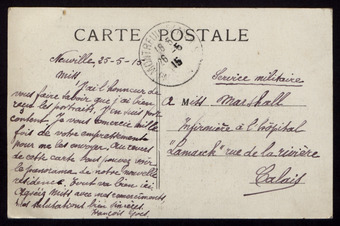 CARTE POSTALE
MONTREUIL
18 15
26-5
15
Neuville, 25-5-15
Miss,
J'ai l'honneur de
vous faire savoir que j'ai bien
reçu les portraits. J'en suis fort
content. Je vous remercie mille
fois de votre empressement
pour me les envoyer. Au revers
de cette carte vous pouvez voir
le panorama de notre nouvelle
résidence. Tout va bien ici.
Agréez Miss avec mes remerciements,
mes salutations bien sincères
François
Service militaire
A Miss Marshall
Infirmière à l'hôpital
"Lamarck" rue de la rivière
Calais